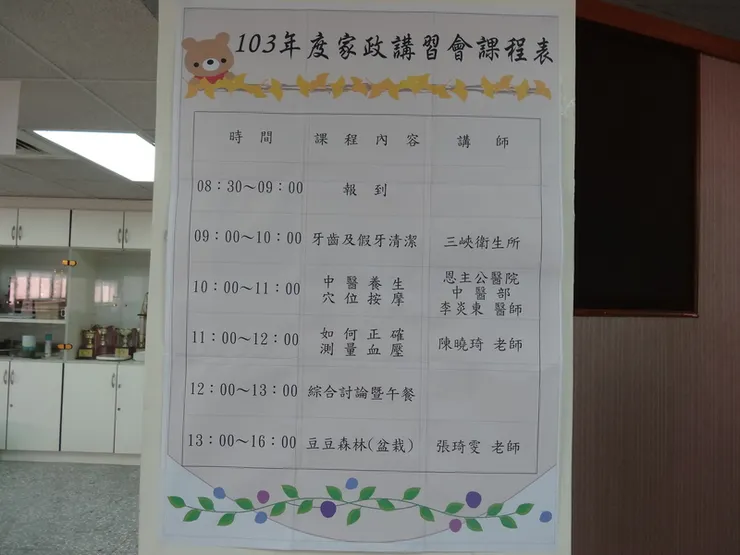 103年度家政講習會課程表
時間 課程內容 講師
08:30～09:00 報到
09:00～10:00 牙齒及假牙清潔 三峽衛生所
10:00～11:00 中醫養生 穴位按摩 恩主公醫院 中醫部 李炎東 醫師
11:00～12:00 如何正確 測量血壓 陳曉琦 老師
12:00～13:00 綜合討論暨午餐
13:00～16:00 豆豆森林(盆栽) 張琦雯 老師